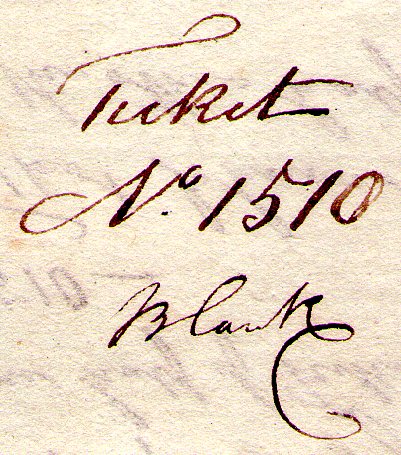 Ticket
No. 1510
Blank